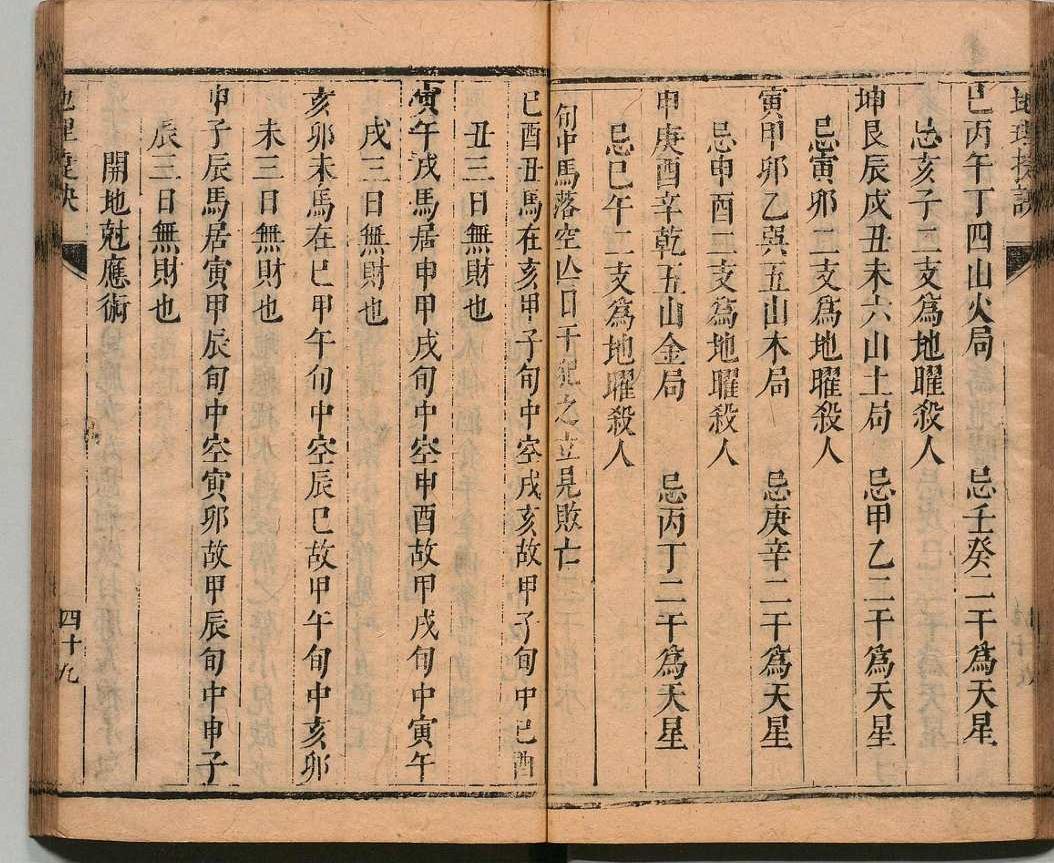 巳丙午丁四山火局 忌壬癸二干為天星
忌亥子二支爲地曜殺人
坤艮辰戌丑未六山土局 忌甲乙二干為天星
忌寅卯二支爲地曜殺人
寅甲卯乙巽五山木局 忌庚辛二干為天星
忌申酉二支爲地曜殺人
申庚酉辛乾五山金局 忌丙丁二干為天星
忌巳午二支爲地曜殺人
旬中馬落空亾日干犯之立見敗亡
巳酉丑馬在亥甲子旬中空戌亥故甲子旬中巳酉
丑三日無財也
寅午戌馬居申甲戌旬中空申酉故甲戌旬中寅午
戌三日無財也
亥卯未馬在巳甲午旬中空辰巳故甲午旬中亥卯
未三日無財也
申子辰馬居寅甲辰旬中空寅卯故甲辰旬中申子
辰三日無財也
開地尅應術
四十九